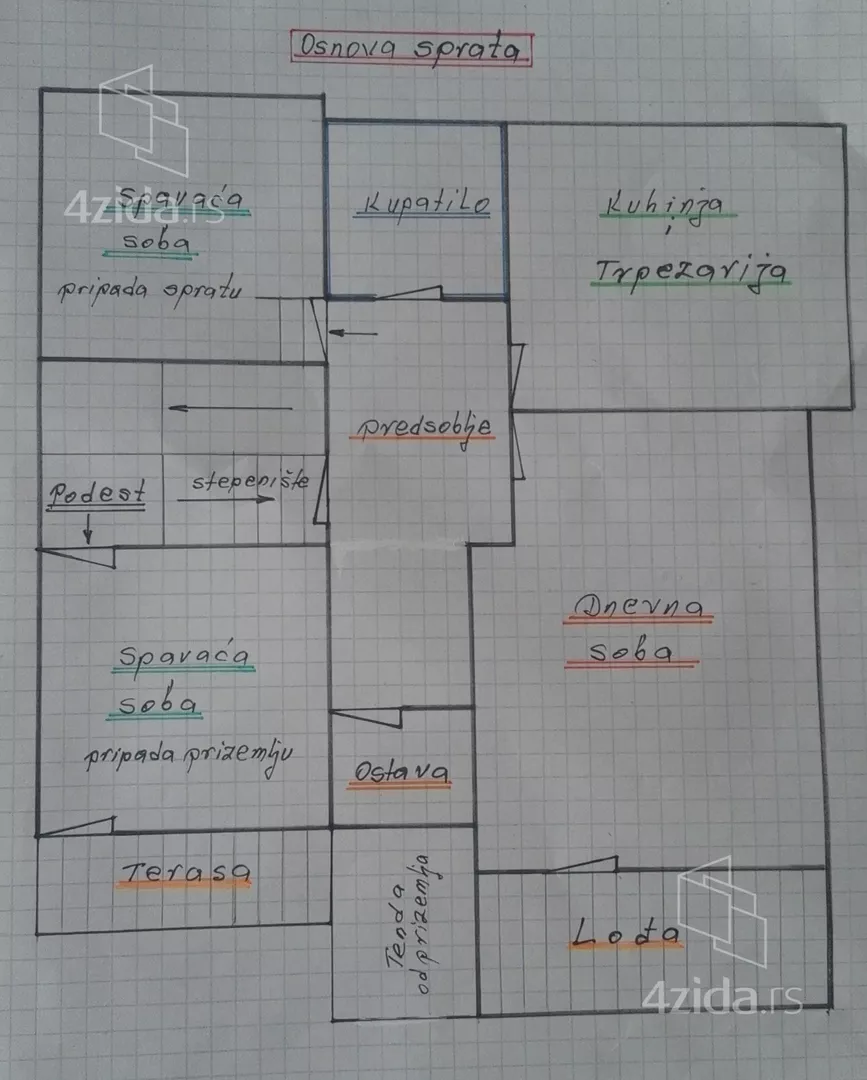 Osnova sprata
4zida.rs
Spavaća
soba
pripada spratu
Kupatilo
Kuhinja
i
Trpezarija
Predsoblje
Podest
stepenište
Spavaća
soba
pripada prizemlju
Dnevna
soba
Ostava
Terasa
Tenda
od prizemlja
Lođa
4zida.rs